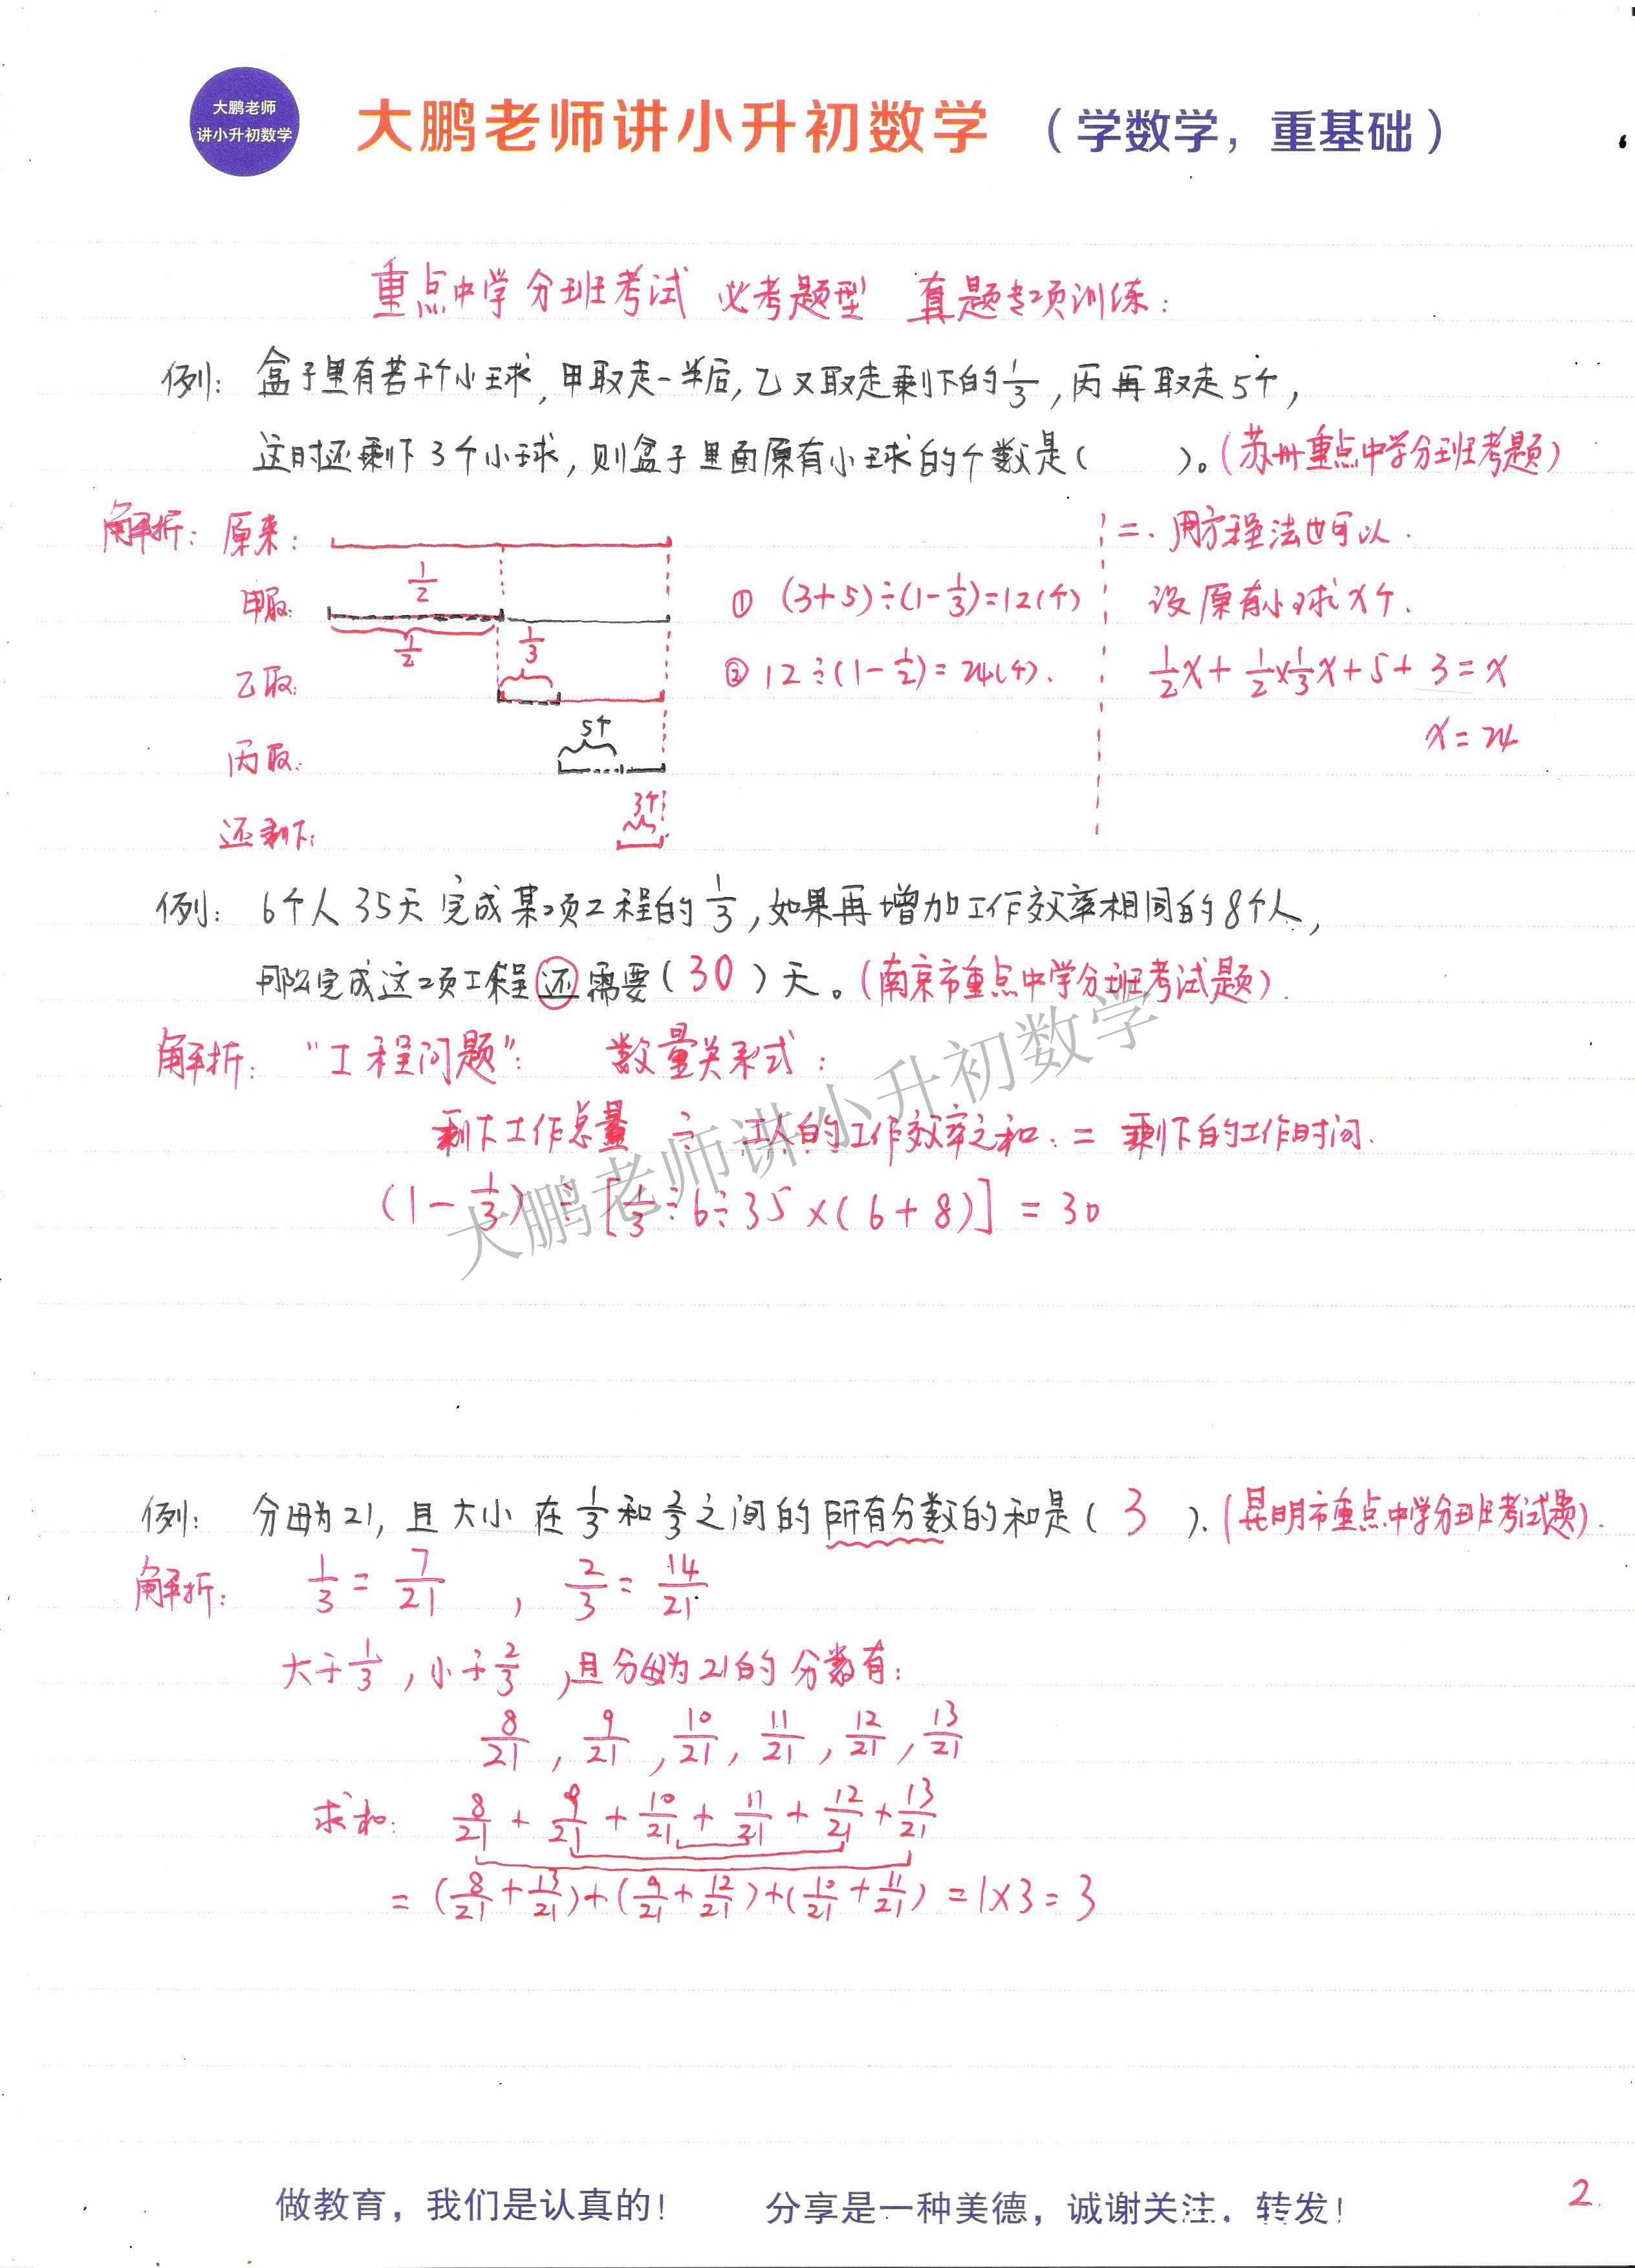 大鹏老师
讲小升初数学
大鹏老师讲小升初数学 （学数学，重基础）
重点中学分班考试 必考题型 真题专项训练：
例： 盒子里有若干个小球，甲取走一半后，乙又取走剩下的1/3，丙再取走5个，
这时还剩下3个小球，则盒子里面原有小球的个数是（ ）。（苏州重点中学分班考题）
解析：原来：
1/2
甲取：
1/2
1/3
乙取：
5个
丙取：
3个
还剩下：
① (3+5)÷(1-1/3)=12(个)
② 12÷(1-1/2)=24(个).
二、用方程法也可以.
设原有小球x个.
1/2x+1/2×1/3x+5+3=x
x=24
例： 6个人35天完成某项工程的1/3，如果再增加工作效率相同的8个人，
那么完成这项工程还需要（30）天。（南京市重点中学分班考试题）.
解析： “工程问题”： 数量关系式：
剩下工作总量 ÷ 工人的工作效率之和 = 剩下的工作时间.
(1-1/3)÷[1/3÷6÷35×(6+8)]=30
大鹏老师讲小升初数学
例： 分母为21，且大小在1/3和2/3之间的所有分数的和是（ 3 ）.（昆明市重点中学分班考试题）.
解析： 1/3=7/21 ， 2/3=14/21
大于1/3，小于2/3，且分母为21的分数有：
8/21，9/21，10/21，11/21，12/21，13/21
求和： 8/21+9/21+10/21+11/21+12/21+13/21
=(8/21+13/21)+(9/21+12/21)+(10/21+11/21)=1×3=3
做教育，我们是认真的！ 分享是一种美德，诚谢关注，转发！
2.